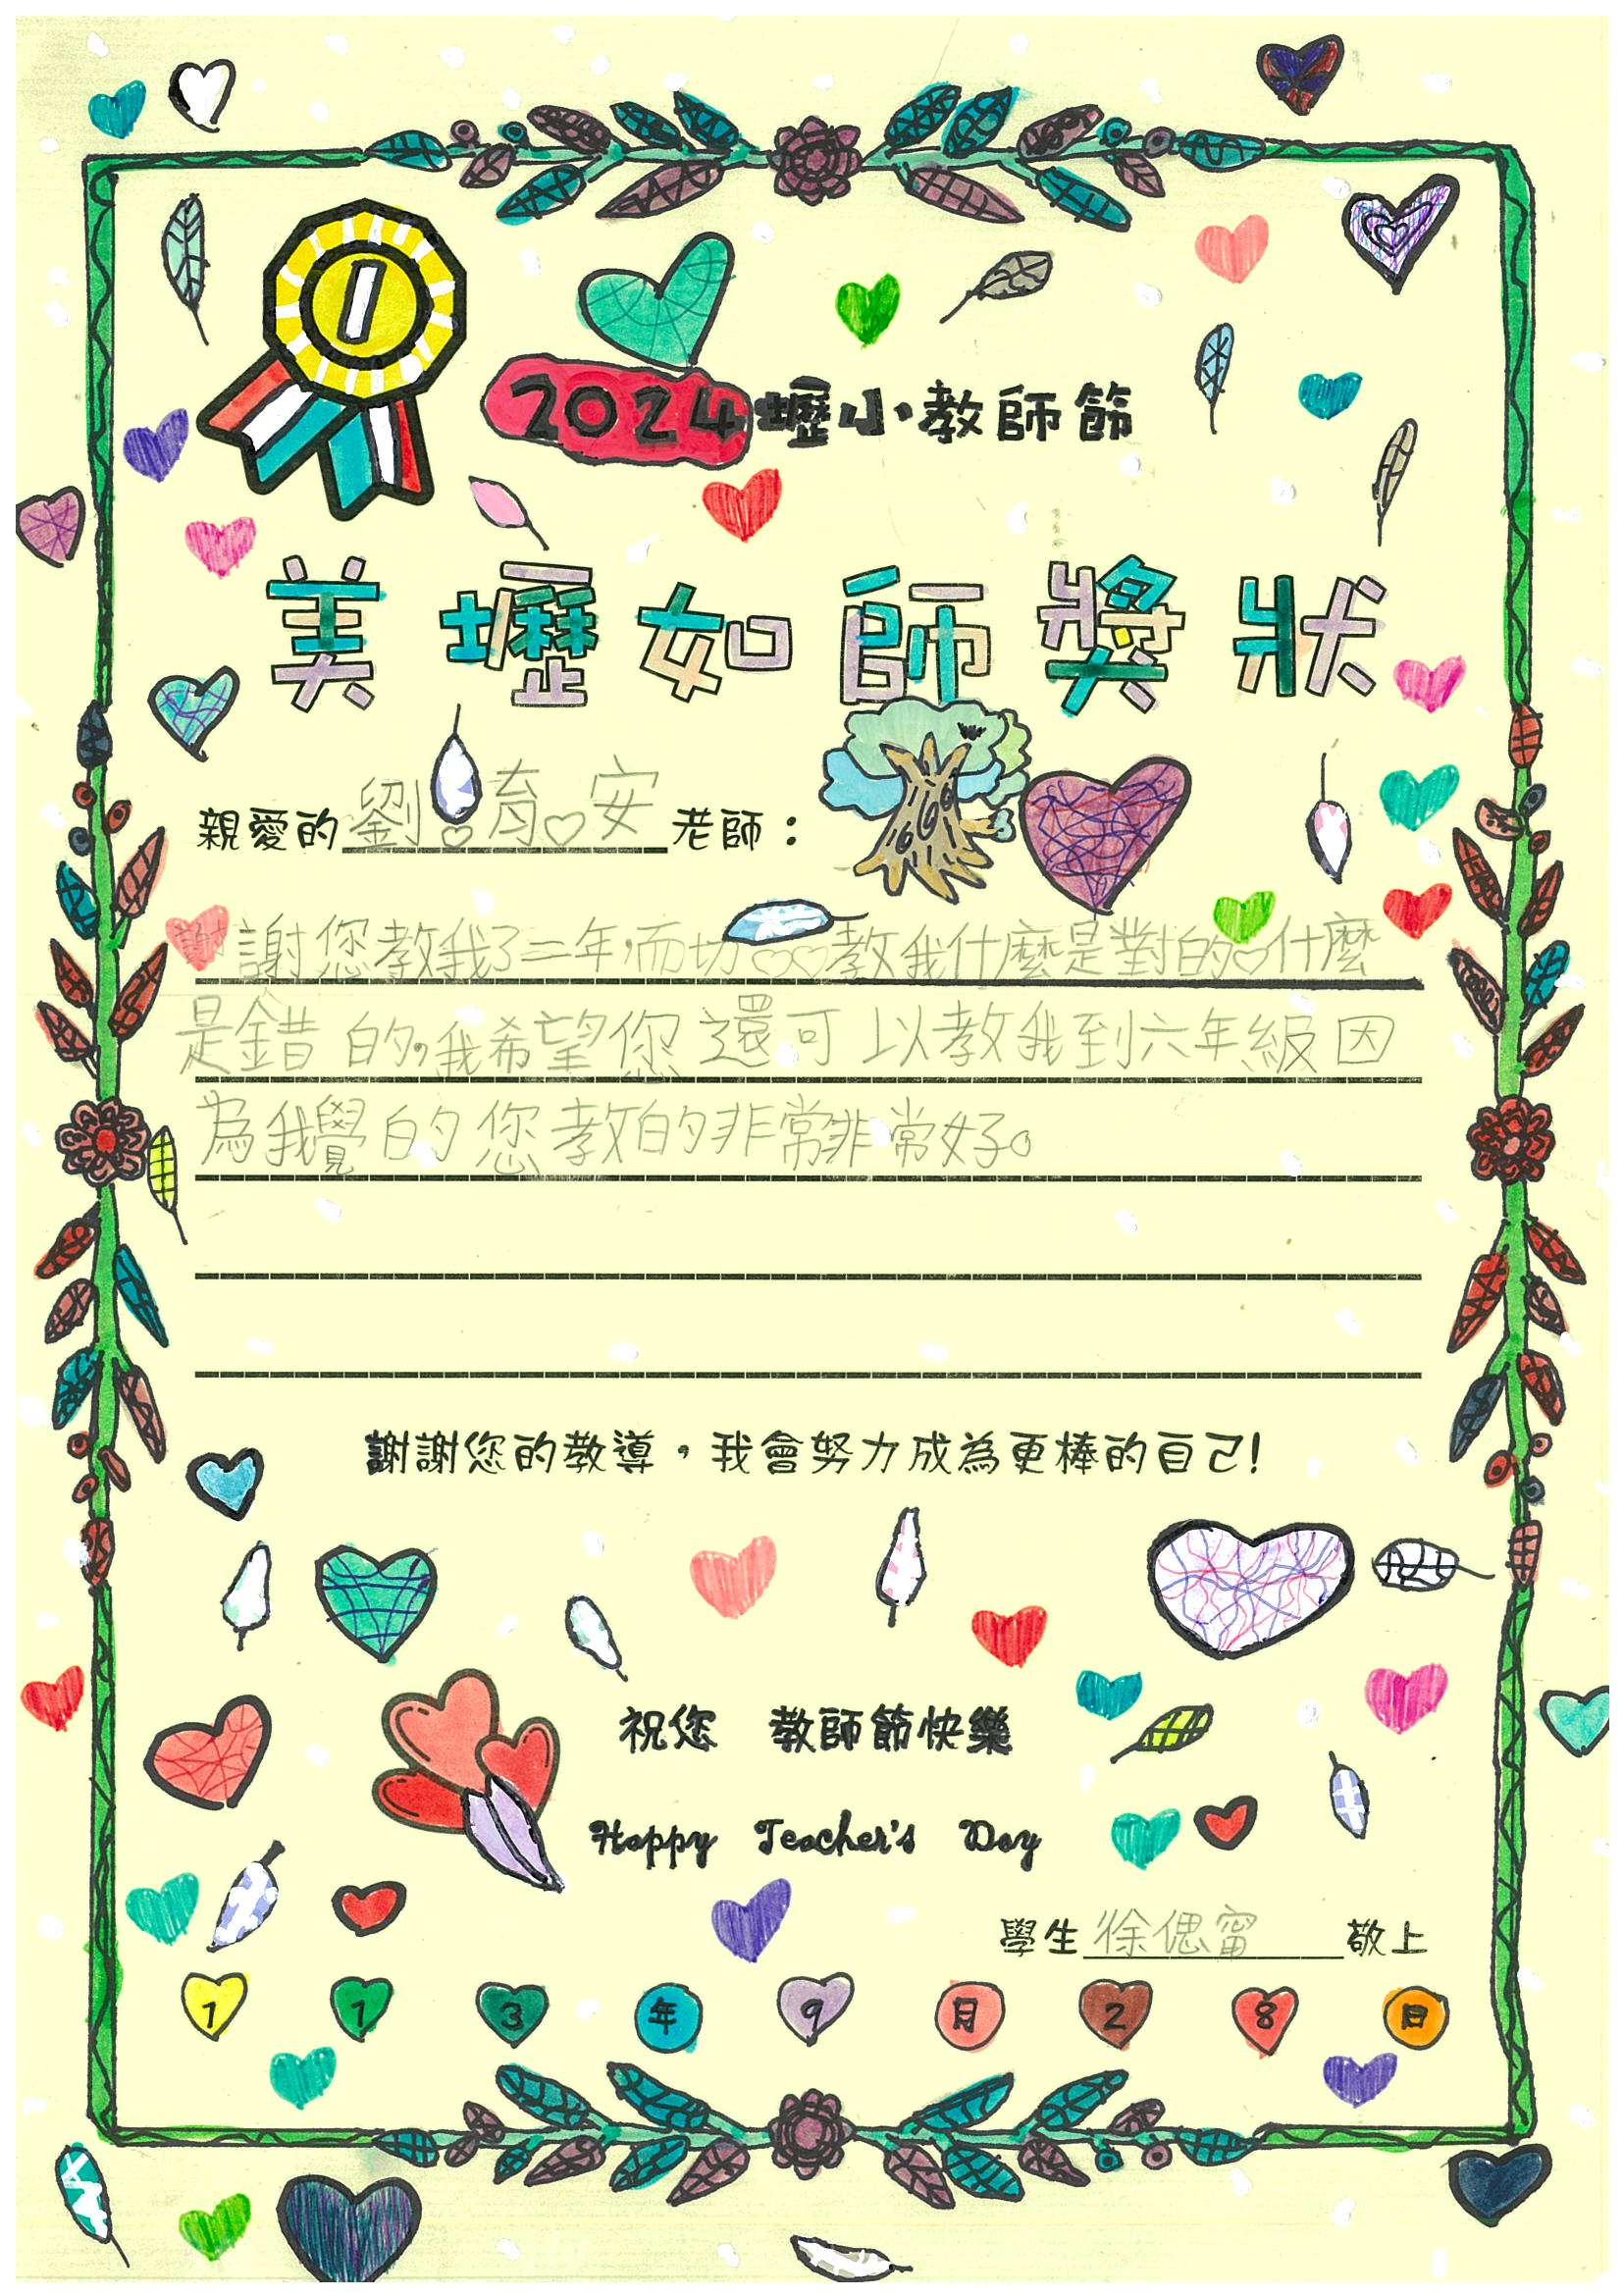 1
2024壢小教師節
美壢如師獎狀
親愛的劉育安老師：
謝謝您教我了二年，而切教我什麼是對的什麼
是錯的，我希望您還可以教我到六年級因
為我覺的您教的非常非常好。
謝謝您的教導，我會努力成為更棒的自己!
祝您 教師節快樂
Happy Teacher's Day
學生徐偲甯敬上
113年9月28日